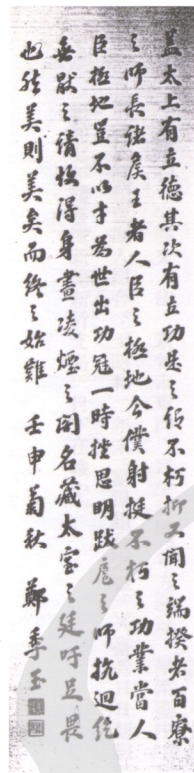 盖太上有立德其次有立功是之謂不朽抑又聞之端揆者百寮
之師長諸侯王者人臣之極地今僕射挺不朽之功業當人
臣極地豈不以才為世出功冠一時挫思明跋扈之師抗迴紇
無猒之請故得身畫凌煙之閣名藏太室之廷吁足畏
也然美則美矣而終之始難 壬申菊秋 鄭季玉